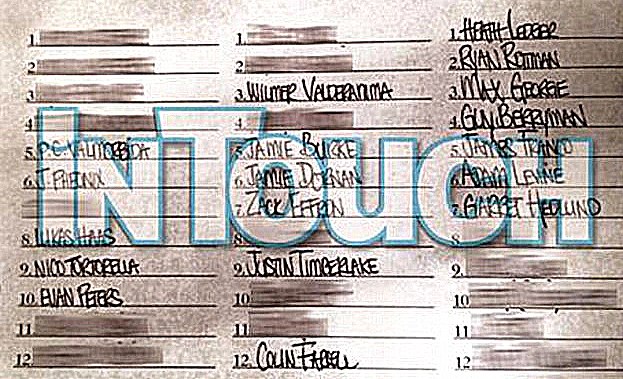 1.
2.
3.
4
5. P.C. VALMORBIDA
6. J. PHEONIX
8. LUKAS HAAS
9. NICO TORTORELLA
10. EVAN PETERS
11
12.
1.
2.
3. WILMER
4
5. JAMIE BURKE
6. JAMIE DORNAN
7. ZACK EFFRON
9. JUSTIN TIMBERLAKE
10
11
12. COLIN FARRELL
1. HEATH LEDGER
2. RYAN ROTTMAN
3. MAX GEORGE
4. GUY BERRYMAN
5. JAMES FRANCO
6. ADAM LEVINE
7. GARRET HEDLUND
8
9.
10
11
12
InTouch